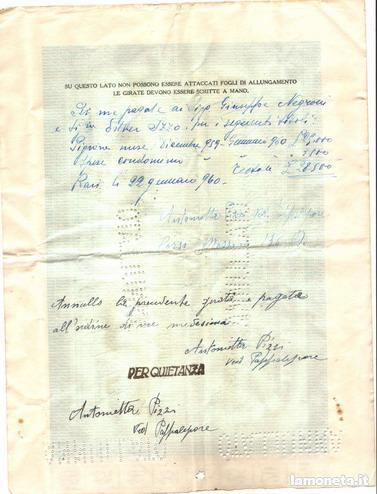 SU QUESTO LATO NON POSSONO ESSERE ATTACCATI FOGLI DI ALLUNGAMENTO
LE GIRATE DEVONO ESSERE SCRITTE A MANO.
Di me pagate ai Sigg Giuseppe Negroni
e Silver Izzo per i seguenti titoli
Pigione mese Dicembre 959 - Gennaio 960
spese condominio
Totale £ 28500
Bari, li 22 gennaio 960.
Antonietta Pizzi
Annullo la precedente girata e pagate
all'ordine di me medesima
Antonietta Pizzi
ved Pappalepore
PER QUIETANZA
Antonietta Pizzi
ved Pappalepore
lamoneta.it